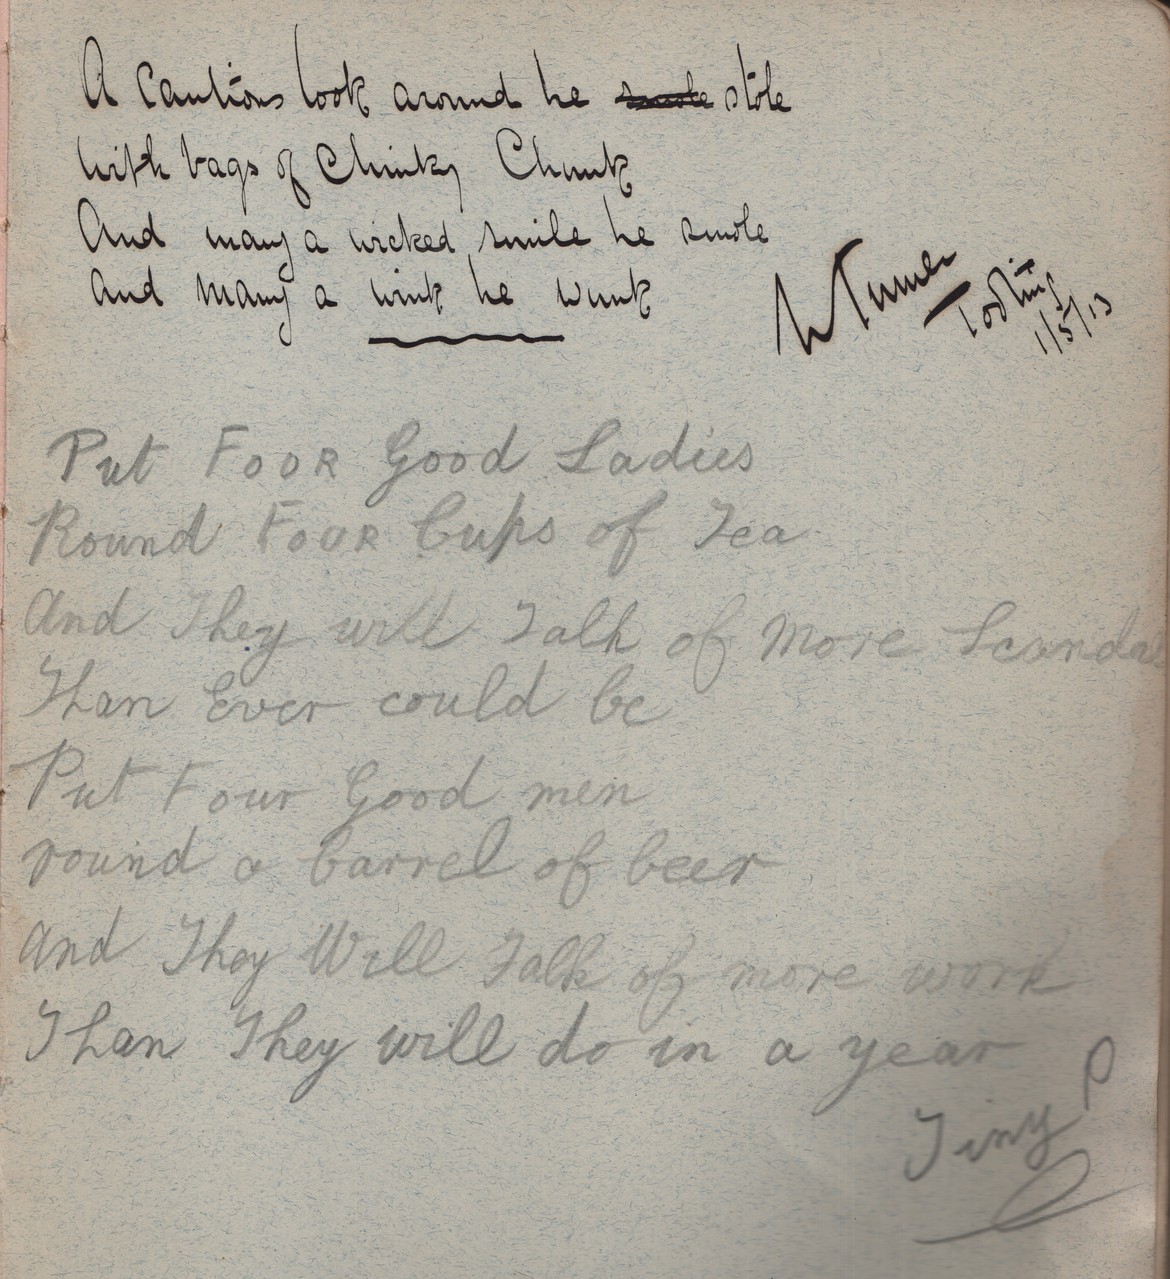 A Cautious look around he smole stole
With bags of Chinky Chunk
And many a wicked smile he smole
And many a wink he wunk
W Turner
Tooting
1/5/13
Put FOOR Good Ladies
Round FOUR Cups of Tea
And They will Talk of More Scandal
Than Ever could be
Put Four Good men
round a barrel of beer
And They Will Talk of more work
Than They will do in a year
Tiny P